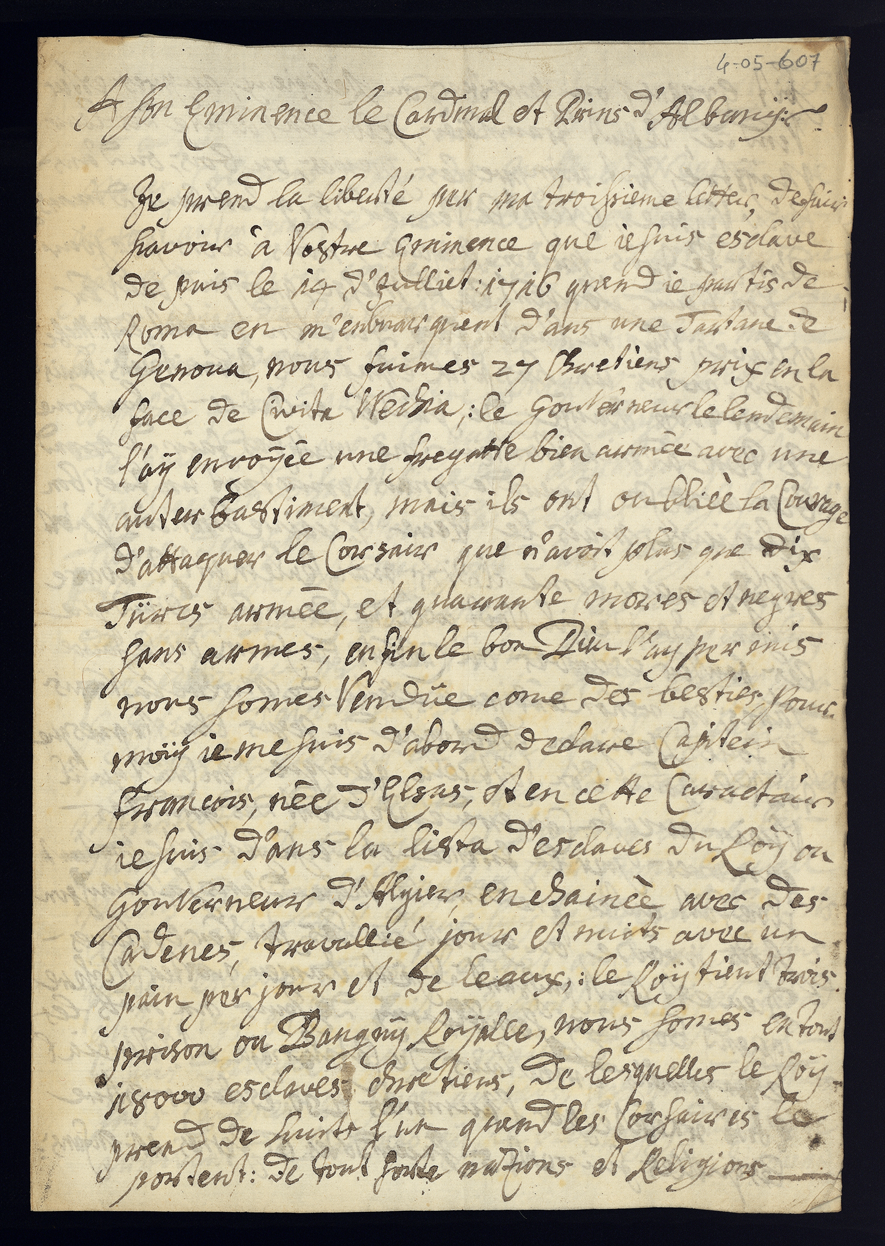 4-05-607
A Son Eminence le Cardinal et Prins d'Albanÿ:
Je prend la liberté per ma troissieme letter, de fair
savoir à Vostre Eminence que ie suis esclave
de puis le 14 d'Julliet: 1716 quend ie partis de
Roma en m'enbuarquent d'ans une Tartane de
Genova, nous fuimes 27 Chretiens prix en la
face de Civita Vechia,: le Gouverneur le lendemain
l'aÿ envoÿée une fregatte bien armée avec une
auter bastiment, mais ils ont oubliée la Courage
d'attaquer le Corsair que n'avoit plus que dix
Türcs armée, et quarante mores et negres
sans armes, enfin le bon Dieu l'aÿ permis
nous somes Vendüe come des besties, Pour
moÿ ie me suis d'abord declare Capitein
francois, née d'Elsas, et en cette Caractair
ie suis d'ans la lista d'esclaves du Roÿ ou
Gouverneur d'Algier, enchainée avec des
Cadenes, travallié jour et nuits avec un
pain pèr jour et de leaux,: le Roÿ tient trois
prison ou Bangnÿ Roÿalle, nous somes en tout
18000 esclaves chretiens, de lesquelles le Roÿ
prend de huits l'un quand les Corsaires le
portent: de tout sorte nations et Religions